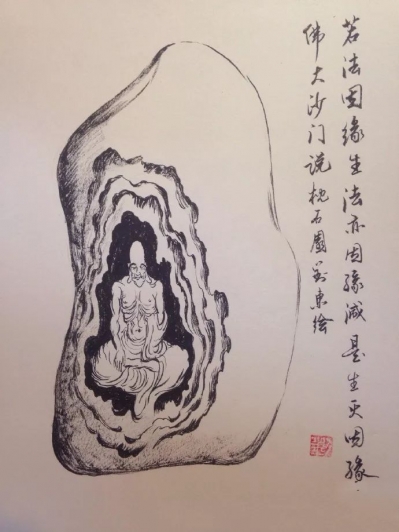 若法因缘生法亦因缘滅是生灭因缘
佛大沙门说枕石圖绘